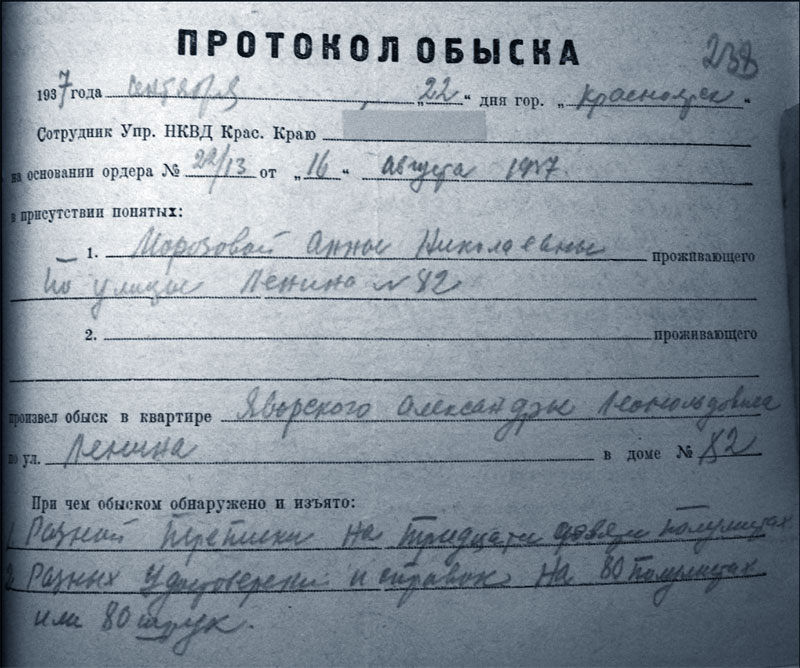 238
ПРОТОКОЛ ОБЫСКА
1937 года сентября „22“ дня гор. „Красноярск“
Сотрудник Упр. НКВД Крас. Краю
на основании ордера № 22/13 от „16“ августа 1937
в присутствии понятых:
1. Морозовой Анны Николаевны проживающего
по улице Ленина № 82
2. проживающего
произвел обыск в квартире Яворского Александра Леопольдовича
по ул. Ленина в доме № 82
При чем обыском обнаружено и изъято:
1. Разной переписки на тридцати девяти полулистах
2. Разных удостоверений и справок на 80 полулистах
или 80 штук.